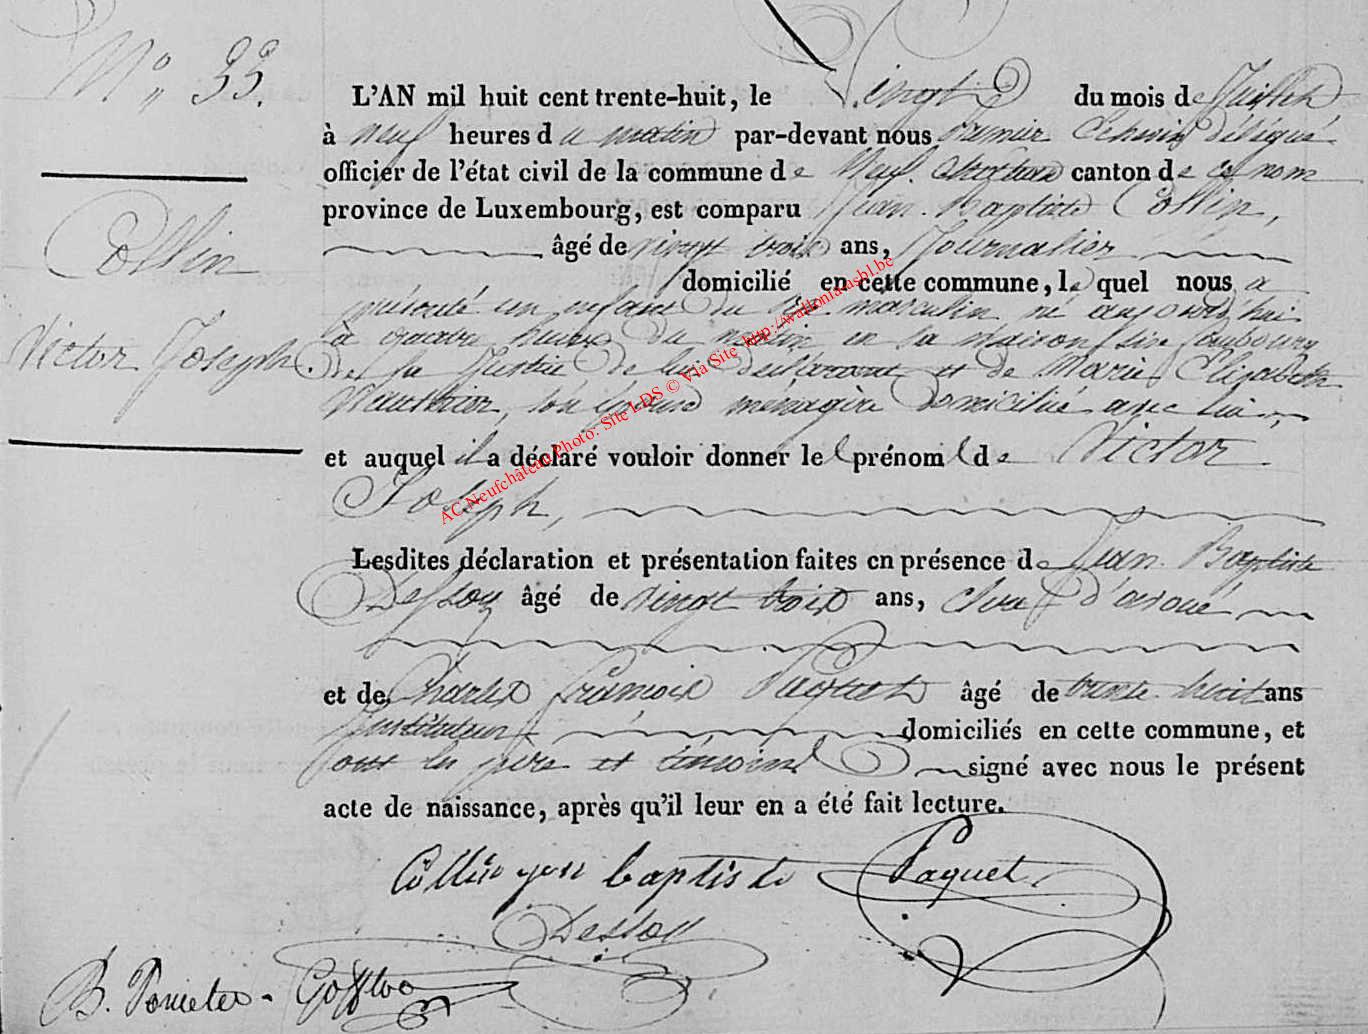 N° 33.
Collin
Victor Joseph.
L'AN mil huit cent trente-huit, le Vingt du mois de Juillet
à neuf heures du matin par-devant nous délégué
officier de l'état civil de la commune de Neufchateau canton de ce nom
province de Luxembourg, est comparu Jean-Baptiste Collin,
âgé de vingt trois ans, Journalier
domicilié en cette commune, lequel nous a
présenté un enfant du sexe masculin né aujourd'hui
à quatre heures du matin en sa maison sise faubourg
de la Justice de lui déclarant et de Marie Elizabeth
son épouse ménagère domiciliée avec lui,
et auquel il a déclaré vouloir donner le prénom de Victor
Joseph,
Lesdites déclaration et présentation faites en présence de Jean Baptiste
Dessoy âgé de vingt trois ans, d'avoué
et de Charles François Paquet âgé de trente huit ans
Instituteur domiciliés en cette commune, et
ont les père et témoins signé avec nous le présent
acte de naissance, après qu'il leur en a été fait lecture.
Collin jean baptiste Paquet
Dessoy
AC Neufchâteau Photo: Site LDS © Via Site http://wallonia-asbl.be